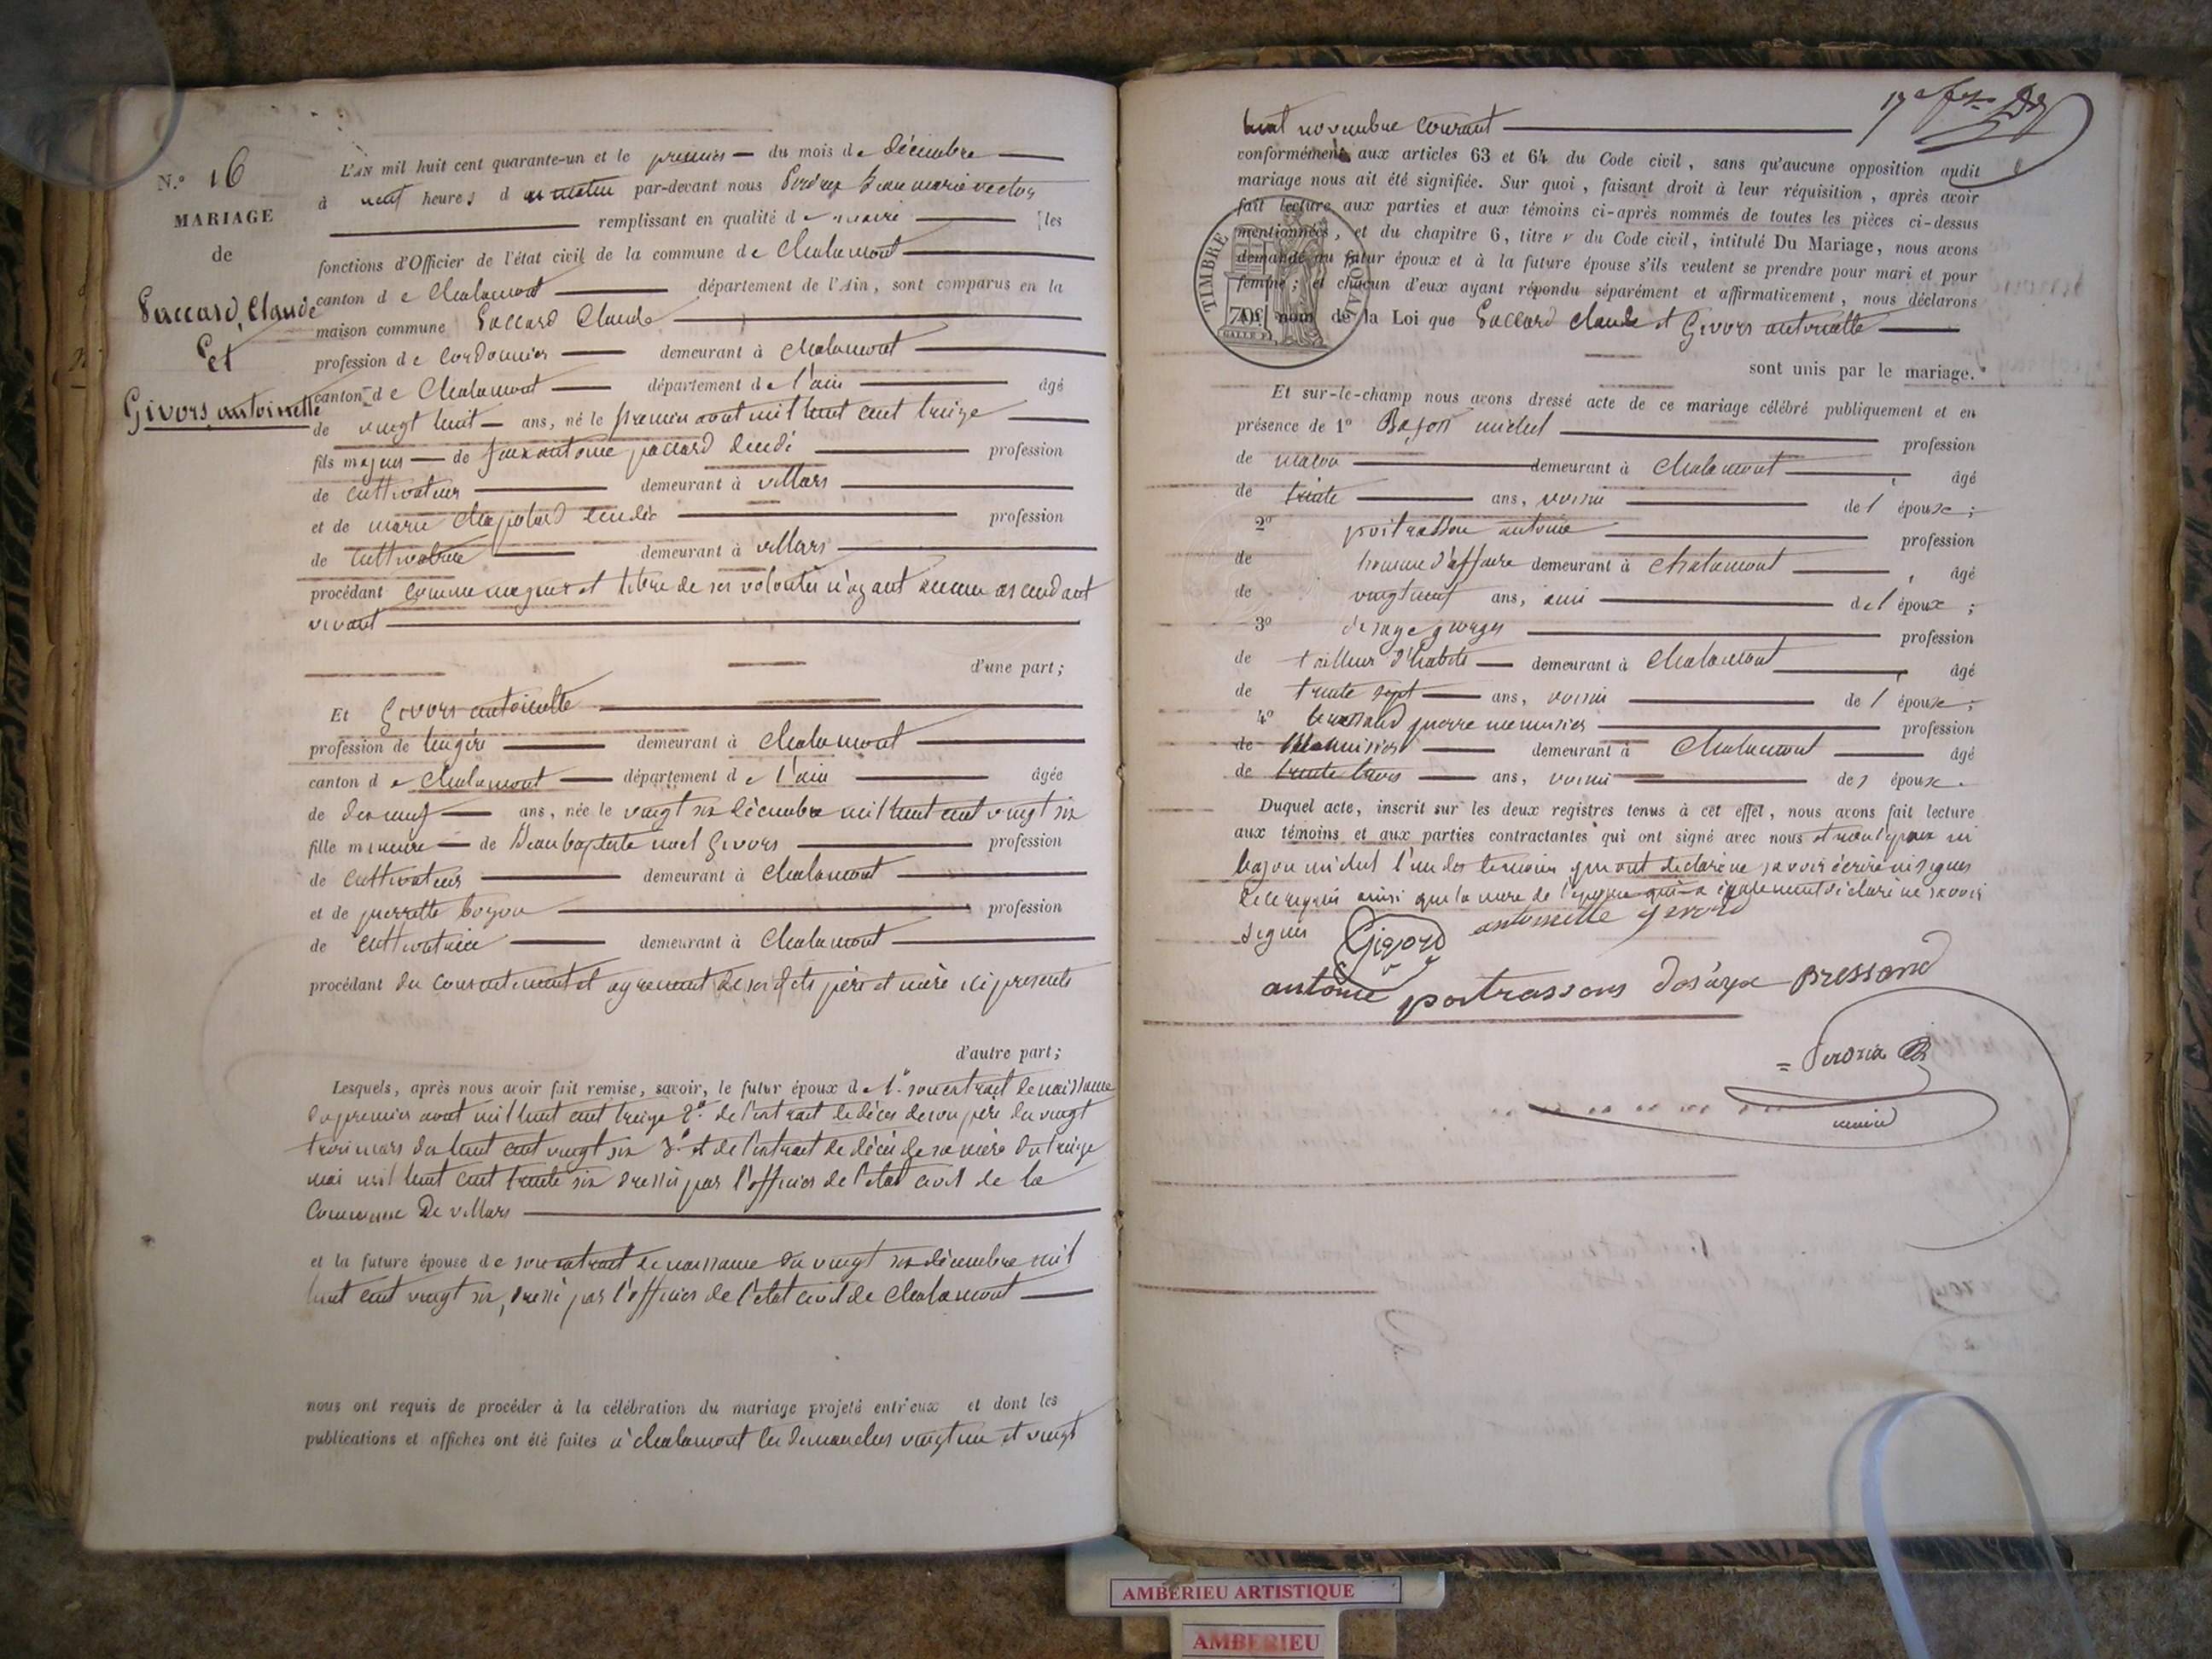 N.° 16
MARIAGE
de
Paccard, Claude
Et
Givors antoinette
L'AN mil huit cent quarante-un et le premier du mois de décembre
à neuf heures d u matin par-devant nous jean marie victor
remplissant en qualité d e maire les
fonctions d'Officier de l'état civil de la commune de Chalamont
canton d e Chalamont département de l'Ain, sont comparus en la
maison commune Paccard Claude
profession de Cordonnier demeurant à Chalamont
canton de Chalamont département de l'ain âgé
de vingt huit ans, né le premier aout mil huit cent treize
fils majeur de feu antoine paccard decedé profession
de cultivateur demeurant à villars
et de marie decedée profession
de cultivatrice demeurant à villars
procédant comme majeur et libre de ses volontés n'ayant aucun ascendant
vivant
d'une part;
Et Givors antoinette
profession de lingère demeurant à Chalamont
canton d e Chalamont département de l'ain âgée
de ans, née le vingt six décembre mil huit cent vingt six
fille mineure de Jean baptiste noel Givors profession
de cultivateur demeurant à Chalamont
et de pierrette profession
de cultivatrice demeurant à Chalamont
procédant du consentement et agrement de ses dits père et mère ici presents
d'autre part;
Lesquels, après nous avoir fait remise, savoir, le futur époux de 1.° son extrait de naissance
du premier aout mil huit cent treize 2.° de l'extrait de décès de son père du vingt
trois mars huit cent vingt six 3.° et de l'extrait de décès de sa mère du treize
mai mil huit cent trente six dressés par l'officier de l'état civil de la
Commune De villars
et la future épouse de son extrait de naissance du vingt six décembre mil
huit cent vingt six, dressé par l'officier de l'état civil de Chalamont
nous ont requis de procéder à la célébration du mariage projeté entr'eux et dont les
publications et affiches ont été faites à chalamont les dimanches vingt un et vingt
huit novembre courant
conformément aux articles 63 et 64 du Code civil, sans qu'aucune opposition audit
mariage nous ait été signifiée. Sur quoi, faisant droit à leur réquisition, après avoir
fait lecture aux parties et aux témoins ci-après nommés de toutes les pièces ci-dessus
mentionnées, et du chapitre 6, titre v du Code civil, intitulé Du Mariage, nous avons
demandé au futur époux et à la future épouse s'ils veulent se prendre pour mari et pour
femme; et chacun d'eux ayant répondu séparément et affirmativement, nous déclarons
TIMBRE ROYAL
70c
Au nom de la Loi que Paccard claude et Givors antoinette
sont unis par le mariage.
Et sur-le-champ nous avons dressé acte de ce mariage célébré publiquement et en
présence de 1° michel profession
de maçon demeurant à Chalamont âgé
de trente ans, voisin de l'épouse;
2° poitrasson antoine profession
de homme d'affaire demeurant à Chalamont, âgé
de vingt neuf ans, ami de l'époux;
3° georges profession
de tailleur d'habits demeurant à Chalamont, âgé
de trente sept ans, voisin de l'épouse;
4° pierre menuisier profession
de Menuisier demeurant à Chalamont âgé
de trente trois ans, voisin de l'épouse.
Duquel acte, inscrit sur les deux registres tenus à cet effet, nous avons fait lecture
aux témoins et aux parties contractantes qui ont signé avec nous et non l'époux ni
michel l'un des temoins qui ont declaré ne savoir écrire ni signer
de ce requis ainsi que la mere de l'épouse qui a également déclaré ne savoir
signer antoinette givord
Givord
antoine poitrassons Bressand
maire
AMBERIEU ARTISTIQUE
AMBERIEU